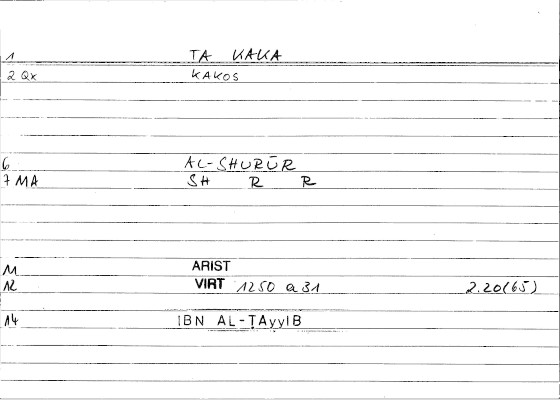 1 TA KAKA
2 Qx KAKOS
6 AL-SHURŪR
7 MA SH R R
11 ARIST
12 VIRT 1250 a 31 2.20(65)
14 IBN AL-ṬAyyIB